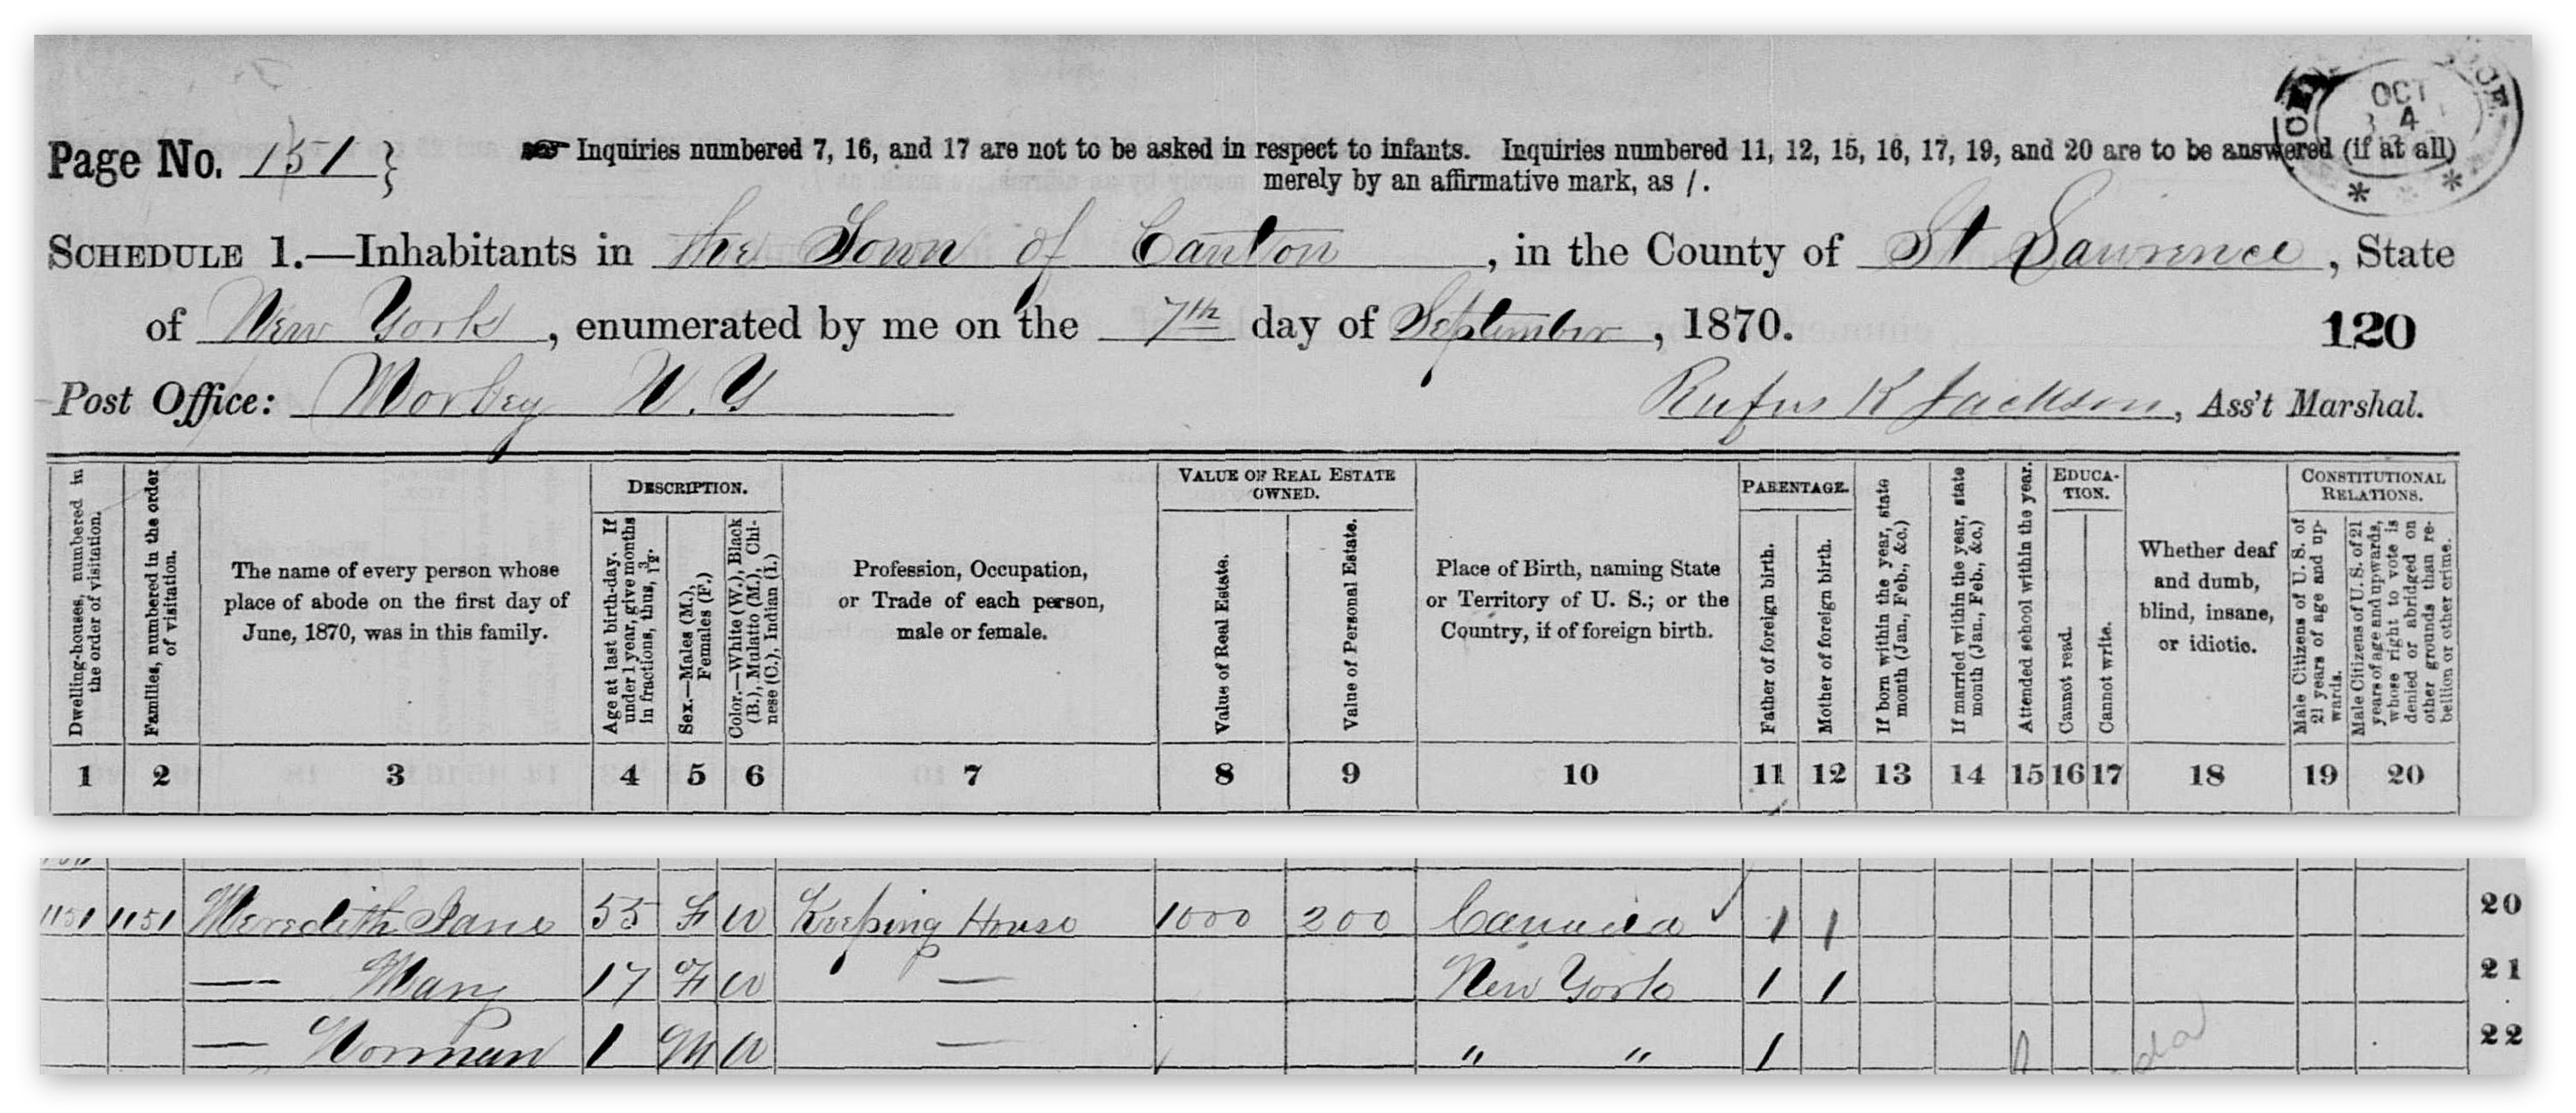 OCT
4
Page No. 151 }
Inquiries numbered 7, 16, and 17 are not to be asked in respect to infants. Inquiries numbered 11, 12, 15, 16, 17, 19, and 20 are to be answered (if at all)
merely by an affirmative mark, as /.
SCHEDULE 1.—Inhabitants in the Town of Canton, in the County of St Lawrence, State
of New York, enumerated by me on the 7th day of September, 1870.
120
Post Office: Morley N.Y
Rufus K Jackson, Ass't Marshal.
Dwelling-houses, numbered in
the order of visitation.
Families, numbered in the order
of visitation.
The name of every person whose
place of abode on the first day of
June, 1870, was in this family.
DESCRIPTION.
Age at last birth-day. If
under 1 year, give months
in fractions, thus, 3/12.
Sex.—Males (M.),
Females (F.)
Color.—White (W.), Black
(B.), Mulatto (M.), Chi-
nese (C.), Indian (I.)
Profession, Occupation,
or Trade of each person,
male or female.
VALUE OF REAL ESTATE
OWNED.
Value of Real Estate.
Value of Personal Estate.
Place of Birth, naming State
or Territory of U. S.; or the
Country, if of foreign birth.
PARENTAGE.
Father of foreign birth.
Mother of foreign birth.
If born within the year, state
month (Jan., Feb., &c.)
If married within the year, state
month (Jan., Feb., &c.)
Attended school within the year.
EDUCA-
TION.
Cannot read.
Cannot write.
Whether deaf
and dumb,
blind, insane,
or idiotic.
CONSTITUTIONAL
RELATIONS.
Male Citizens of U. S. of
21 years of age and up-
wards.
Male Citizens of U. S. of 21
years of age and upwards,
whose right to vote is
denied or abridged on
other grounds than re-
bellion or other crime.
1 2 3 4 5 6 7 8 9 10 11 12 13 14 15 16 17 18 19 20
1151 1151 Meredith Jane 55 F W Keeping House 1000 200 Canada ✓ 1 1 20
— Mary 17 F W — New York 1 1 21
— Norman 1 M W — " " 1 22